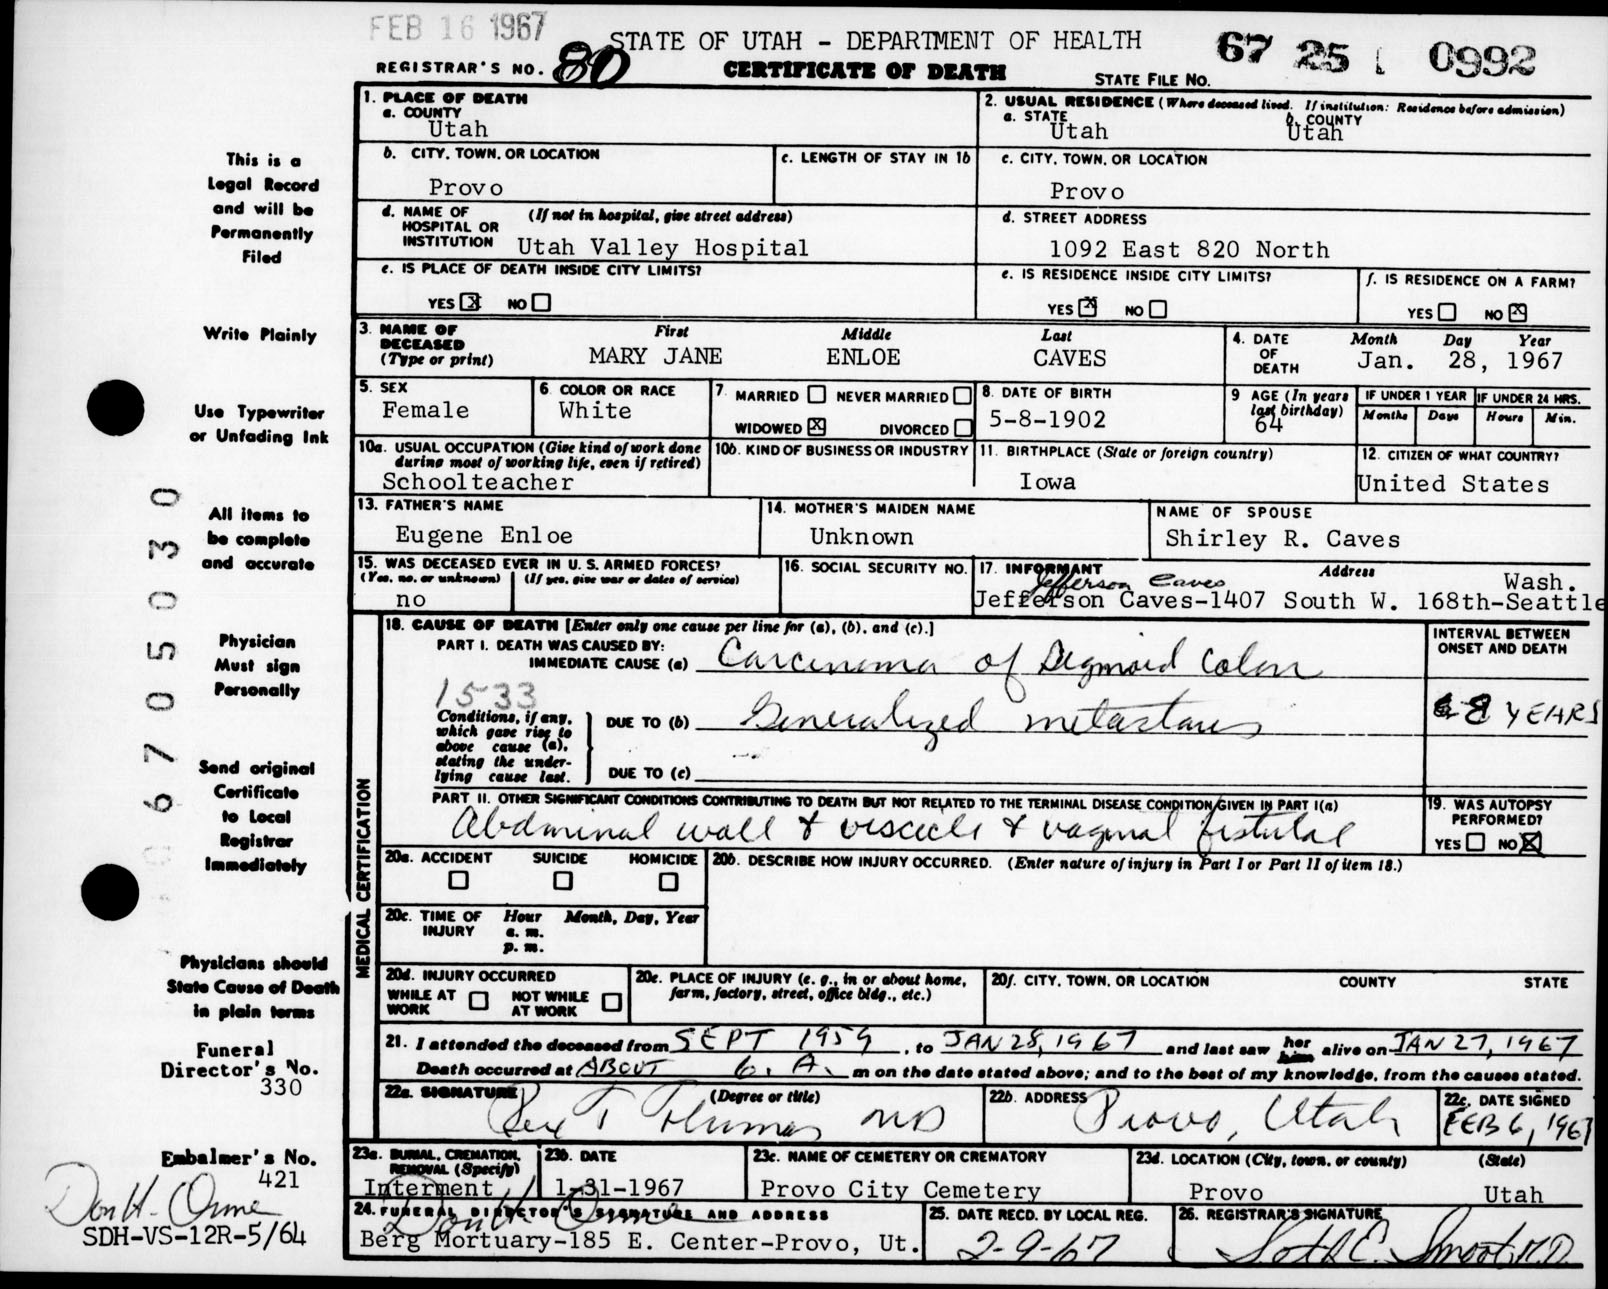 FEB 16 1967
STATE OF UTAH - DEPARTMENT OF HEALTH
67 25 0992
REGISTRAR'S NO. 80
CERTIFICATE OF DEATH
STATE FILE NO.
1. PLACE OF DEATH
a. COUNTY
Utah
2. USUAL RESIDENCE (Where deceased lived. If institution: Residence before admission)
a. STATE
Utah
b. COUNTY
Utah
b. CITY, TOWN, OR LOCATION
Provo
c. LENGTH OF STAY IN 1b
c. CITY, TOWN, OR LOCATION
Provo
d. NAME OF HOSPITAL OR INSTITUTION
(If not in hospital, give street address)
Utah Valley Hospital
d. STREET ADDRESS
1092 East 820 North
e. IS PLACE OF DEATH INSIDE CITY LIMITS?
YES X NO
e. IS RESIDENCE INSIDE CITY LIMITS?
YES X NO
f. IS RESIDENCE ON A FARM?
YES NO X
3. NAME OF DECEASED
(Type or print)
First Middle Last
MARY JANE ENLOE CAVES
4. DATE OF DEATH
Month Day Year
Jan. 28, 1967
5. SEX
Female
6. COLOR OR RACE
White
7. MARRIED NEVER MARRIED
WIDOWED X DIVORCED
8. DATE OF BIRTH
5-8-1902
9 AGE (In years last birthday)
64
IF UNDER 1 YEAR
Months Days
IF UNDER 24 HRS.
Hours Min.
10a. USUAL OCCUPATION (Give kind of work done during most of working life, even if retired)
Schoolteacher
10b. KIND OF BUSINESS OR INDUSTRY
11. BIRTHPLACE (State or foreign country)
Iowa
12. CITIZEN OF WHAT COUNTRY?
United States
13. FATHER'S NAME
Eugene Enloe
14. MOTHER'S MAIDEN NAME
Unknown
NAME OF SPOUSE
Shirley R. Caves
15. WAS DECEASED EVER IN U. S. ARMED FORCES?
(Yes, no, or unknown) (If yes, give war or dates of service)
no
16. SOCIAL SECURITY NO.
17. INFORMANT
Address
Jefferson Caves
Wash.
Jefferson Caves-1407 South W. 168th-Seattle
MEDICAL CERTIFICATION
18. CAUSE OF DEATH [Enter only one cause per line for (a), (b), and (c).]
PART I. DEATH WAS CAUSED BY:
IMMEDIATE CAUSE (a) Carcinoma of Sigmoid Colon
INTERVAL BETWEEN ONSET AND DEATH
8 YEARS
1533
Conditions, if any, which gave rise to above cause (a), stating the underlying cause last.
DUE TO (b) Generalized metastases
DUE TO (c)
PART II. OTHER SIGNIFICANT CONDITIONS CONTRIBUTING TO DEATH BUT NOT RELATED TO THE TERMINAL DISEASE CONDITION GIVEN IN PART I(a)
Abdominal wall & & vaginal fistulae
19. WAS AUTOPSY PERFORMED?
YES NO X
20a. ACCIDENT SUICIDE HOMICIDE
20b. DESCRIBE HOW INJURY OCCURRED. (Enter nature of injury in Part I or Part II of item 18.)
20c. TIME OF INJURY
Hour Month, Day, Year
a. m.
p. m.
20d. INJURY OCCURRED
WHILE AT WORK NOT WHILE AT WORK
20e. PLACE OF INJURY (e. g., in or about home, farm, factory, street, office bldg., etc.)
20f. CITY, TOWN, OR LOCATION COUNTY STATE
21. I attended the deceased from SEPT 1959, to JAN 28, 1967 and last saw her him alive on JAN 27, 1967
Death occurred at ABOUT 6. A. m on the date stated above; and to the best of my knowledge, from the causes stated.
22a. SIGNATURE
(Degree or title)
Rex T Thomas MD
22b. ADDRESS
Provo, Utah
22c. DATE SIGNED
FEB 6, 1967
23a. BURIAL, CREMATION, REMOVAL (Specify)
Interment
23b. DATE
1-31-1967
23c. NAME OF CEMETERY OR CREMATORY
Provo City Cemetery
23d. LOCATION (City, town, or county) (State)
Provo Utah
24. FUNERAL DIRECTOR'S SIGNATURE AND ADDRESS
Don H. Orme
Berg Mortuary-185 E. Center-Provo, Ut.
25. DATE RECD. BY LOCAL REG.
2-9-67
26. REGISTRAR'S SIGNATURE
Seth E. Smoot, M.D.
This is a
Legal Record
and will be
Permanently
Filed
Write Plainly
Use Typewriter
or Unfading Ink
All items to
be complete
and accurate
Physician
Must sign
Personally
Send original
Certificate
to Local
Registrar
Immediately
Physicians should
State Cause of Death
in plain terms
Funeral
Director's No.
330
Embalmer's No.
421
Don H. Orme
SDH-VS-12R-5/64
6705030